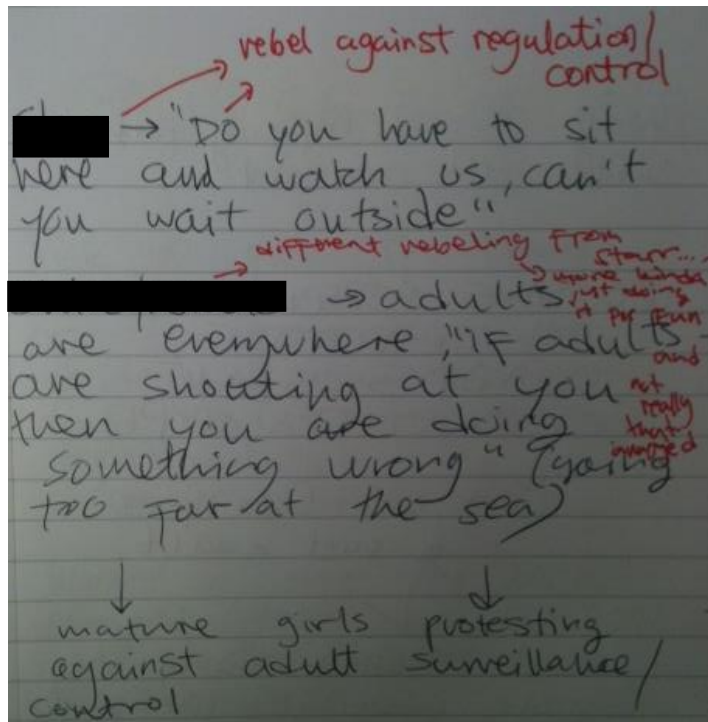 rebel against regulation/
control
→ "Do you have to sit
here and watch us, can't
you wait outside"
different rebeling from
starr...
→ adults
more kinda
just doing
it for fun
are everywhere, "if adults
and
are shouting at you
not
really
then you are doing
that
something wrong" (going
too far at the sea)
mature girls protesting
against adult surveillance/
control